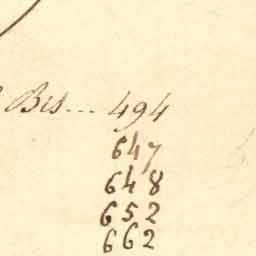 Bis... 494
647
648
652
662